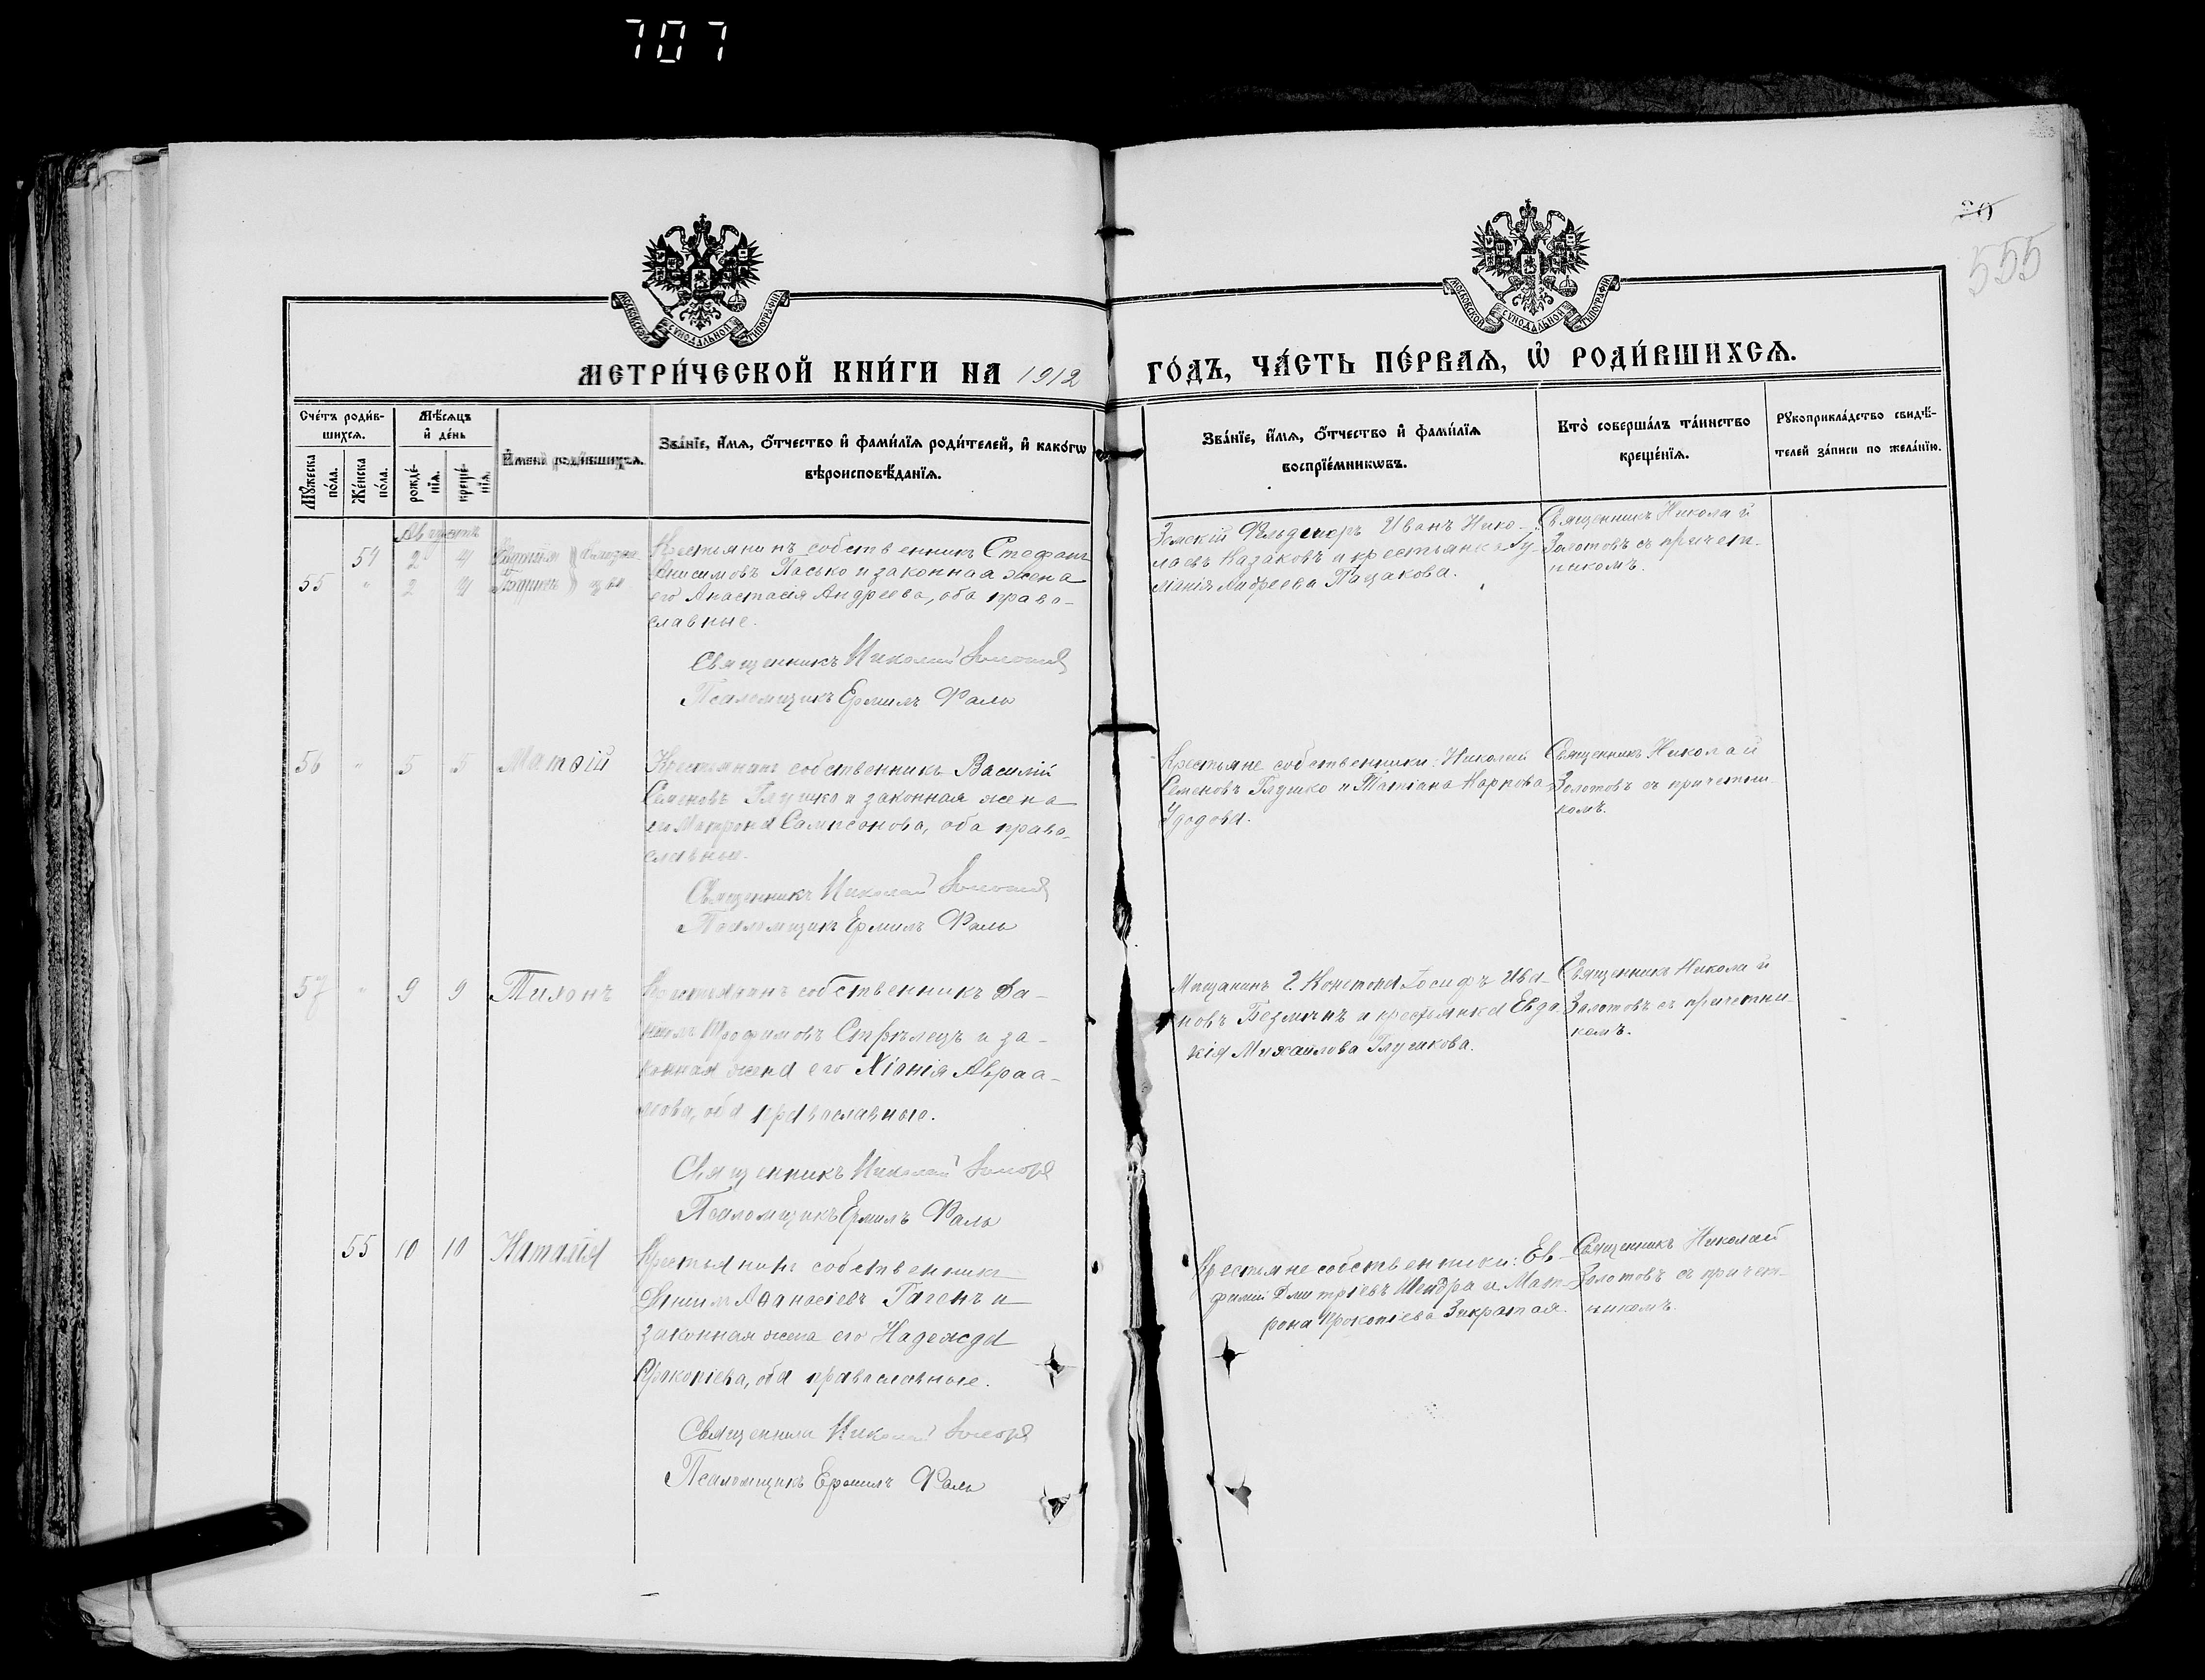 707
20
555
МОСКОВСКОЙ СѴНОДАЛЬНОЙ ТИПОГРАФІИ
МОСКОВСКОЙ СѴНОДАЛЬНОЙ ТИПОГРАФІИ
МЕТРИ́ЧЕСКОЙ КНИ́ГИ НА 1912
ГО́ДЪ, ЧА́СТЬ ПЕ́РВАѦ, Ѡ҆ РОДИ́ВШИХСѦ.
Сче́тъ роди́в-
шихсѧ.
Мꙋ́жеска по́ла.
Же́нска по́ла.
Мѣ́сѧцъ
и҆ де́нь
рожде́-
нїѧ.
креще́-
нїѧ.
И҆мена̀ роди́вшихсѧ.
Зва́нїе, и҆́мѧ, ѻ҆́тчество и҆ фами́лїѧ роди́телей, и҆ како́гѡ
вѣроисповѣ́данїѧ.
Зва́нїе, и҆́мѧ, ѻ҆́тчество и҆ фами́лїѧ
воспрїе́мникѡвъ.
Кто̀ соверша́лъ та́инство
креще́нїѧ.
Рꙋкоприкла́дство свидѣ́-
телей за́писи по жела́нїю.
Августъ
54 2 4
55 " 2 4
Крестьянинъ собственникъ Стефанъ
Анисимовъ Пасько и законная жена
его Анастасія Андреева, оба право-
славные.
Священникъ Николай Золотовъ
Псаломщикъ Ермилъ Фаль
Земскій Фельдшеръ Иванъ Нико-
лаевъ Казаковъ и крестьянка Гу-
Андреева Пацакова.
Священникъ Николай
Золотовъ съ причет-
никомъ.
56 " 5 5 Матѳій
Крестьянинъ собственникъ Василій
Семеновъ Глушко и законная жена
его Матрона Сампсонова, оба право-
славные.
Священникъ Николай Золотовъ
Псаломщикъ Ермилъ Фаль
Крестьяне собственники: Николай
Семеновъ Глушко и Татіана Карпова
Удодова.
Священникъ Николай
Золотовъ съ причетни-
комъ.
57 " 9 9 Тихонъ
Крестьянинъ собственникъ
Трофимовъ Стрѣлецъ и за-
конная жена его Хіонія Авраа-
мова, оба православные.
Священникъ Николай Золотовъ
Псаломщикъ Ермилъ Фаль
Мѣщанинъ г. Іосифъ Ива-
новъ и крестьянка Евдо-
кія Михайлова Глушкова.
Священникъ Николай
Золотовъ съ причетни-
комъ.
55 10 10 Наталія
Крестьянинъ собственникъ
Аѳанасіевъ Гагенъ и
законная жена его Надежда
Прокопіева, оба православные.
Священникъ Николай Золотовъ
Псаломщикъ Ермилъ Фаль
Крестьяне собственники: Ев-
фимій Дмитріевъ Шендра и Мат-
рона Прокопіева Закратая.
Священникъ Николай
Золотовъ съ причет-
никомъ.